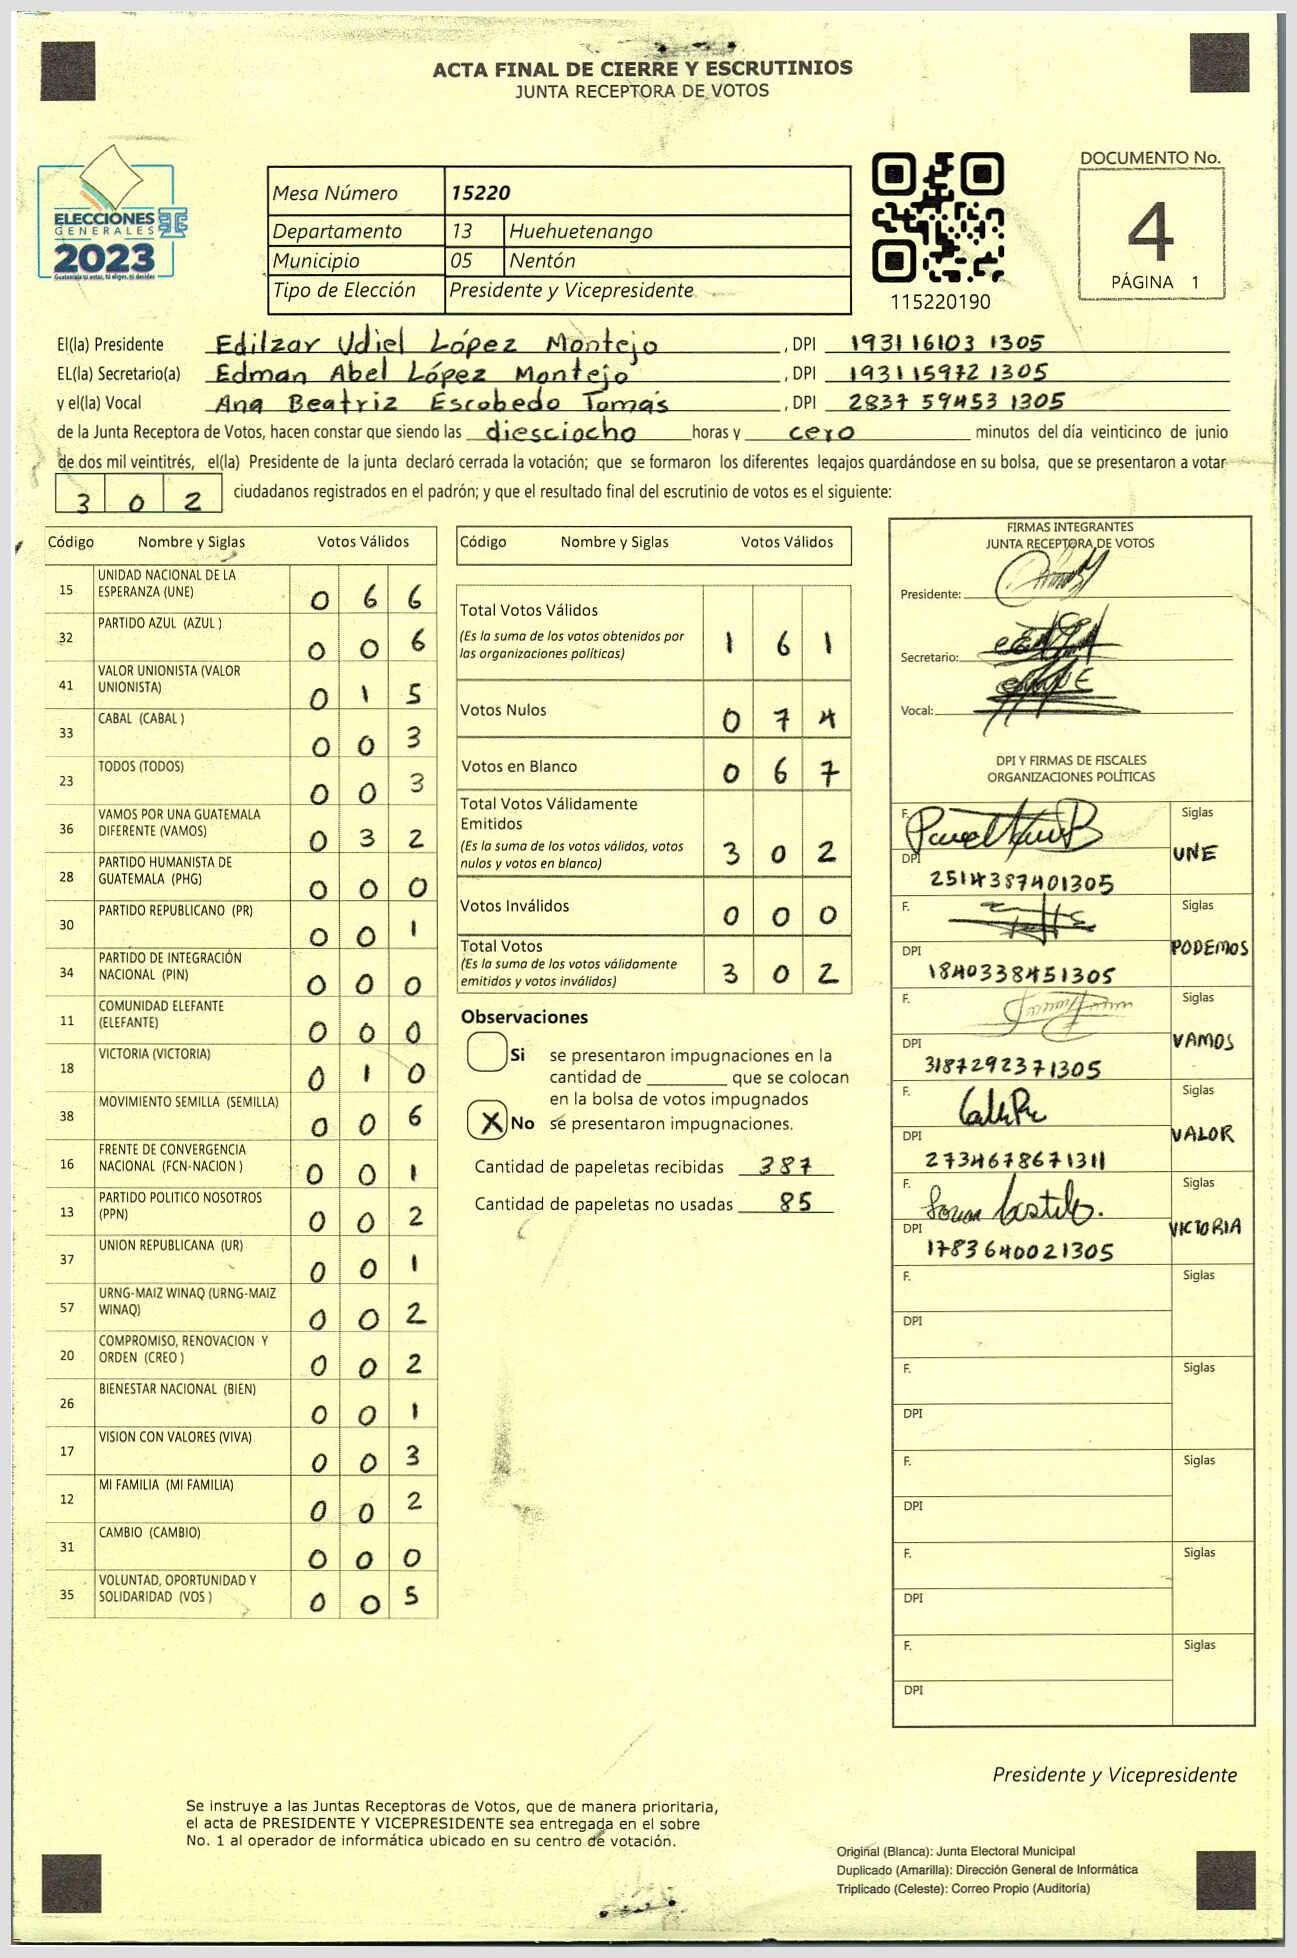 ACTA FINAL DE CIERRE Y ESCRUTINIOS
JUNTA RECEPTORA DE VOTOS
ELECCIONES
GENERALES
2023
Mesa Número 15220
Departamento 13 Huehuetenango
Municipio 05 Nentón
Tipo de Elección Presidente y Vicepresidente
115220190
DOCUMENTO No.
4
PÁGINA 1
El(la) Presidente Edilzar Udiel López Montejo , DPI 193116103 1305
EL(la) Secretario(a) Edman Abel López Montejo , DPI 193115972 1305
y el(la) Vocal Ana Beatriz Escobedo Tomás , DPI 2837 59453 1305
de la Junta Receptora de Votos, hacen constar que siendo las diesciocho horas y cero minutos del día veinticinco de junio
de dos mil veintitrés, el(la) Presidente de la junta declaró cerrada la votación; que se formaron los diferentes legajos guardándose en su bolsa, que se presentaron a votar
3 0 2 ciudadanos registrados en el padrón; y que el resultado final del escrutinio de votos es el siguiente:
Código Nombre y Siglas Votos Válidos
15 UNIDAD NACIONAL DE LA
ESPERANZA (UNE) 0 6 6
32 PARTIDO AZUL (AZUL ) 0 0 6
41 VALOR UNIONISTA (VALOR
UNIONISTA) 0 1 5
33 CABAL (CABAL ) 0 0 3
23 TODOS (TODOS) 0 0 3
36 VAMOS POR UNA GUATEMALA
DIFERENTE (VAMOS) 0 3 2
28 PARTIDO HUMANISTA DE
GUATEMALA (PHG) 0 0 0
30 PARTIDO REPUBLICANO (PR) 0 0 1
34 PARTIDO DE INTEGRACIÓN
NACIONAL (PIN) 0 0 0
11 COMUNIDAD ELEFANTE
(ELEFANTE) 0 0 0
18 VICTORIA (VICTORIA) 0 1 0
38 MOVIMIENTO SEMILLA (SEMILLA) 0 0 6
16 FRENTE DE CONVERGENCIA
NACIONAL (FCN-NACION ) 0 0 1
13 PARTIDO POLITICO NOSOTROS
(PPN) 0 0 2
37 UNION REPUBLICANA (UR) 0 0 1
57 URNG-MAIZ WINAQ (URNG-MAIZ
WINAQ) 0 0 2
20 COMPROMISO, RENOVACION Y
ORDEN (CREO ) 0 0 2
26 BIENESTAR NACIONAL (BIEN) 0 0 1
17 VISION CON VALORES (VIVA) 0 0 3
12 MI FAMILIA (MI FAMILIA) 0 0 2
31 CAMBIO (CAMBIO) 0 0 0
35 VOLUNTAD, OPORTUNIDAD Y
SOLIDARIDAD (VOS ) 0 0 5
Código Nombre y Siglas Votos Válidos
Total Votos Válidos
(Es la suma de los votos obtenidos por
las organizaciones políticas) 1 6 1
Votos Nulos 0 7 4
Votos en Blanco 0 6 7
Total Votos Válidamente
Emitidos
(Es la suma de los votos válidos, votos
nulos y votos en blanco) 3 0 2
Votos Inválidos 0 0 0
Total Votos
(Es la suma de los votos válidamente
emitidos y votos inválidos) 3 0 2
Observaciones
Si se presentaron impugnaciones en la
cantidad de ________ que se colocan
en la bolsa de votos impugnados
X No se presentaron impugnaciones.
Cantidad de papeletas recibidas 387
Cantidad de papeletas no usadas 85
FIRMAS INTEGRANTES
JUNTA RECEPTORA DE VOTOS
Presidente:
Secretario:
Vocal:
DPI Y FIRMAS DE FISCALES
ORGANIZACIONES POLÍTICAS
F. Siglas
UNE
DPI
2514387401305
F. Siglas
PODEMOS
DPI
1840338451305
F. Siglas
VAMOS
DPI
3187292371305
F. Siglas
VALOR
DPI
2734678671311
F. Siglas
VICTORIA
DPI
1783640021305
F. Siglas
DPI
F. Siglas
DPI
F. Siglas
DPI
F. Siglas
DPI
F. Siglas
DPI
Presidente y Vicepresidente
Se instruye a las Juntas Receptoras de Votos, que de manera prioritaria,
el acta de PRESIDENTE Y VICEPRESIDENTE sea entregada en el sobre
No. 1 al operador de informática ubicado en su centro de votación.
Original (Blanca): Junta Electoral Municipal
Duplicado (Amarilla): Dirección General de Informática
Triplicado (Celeste): Correo Propio (Auditoría)